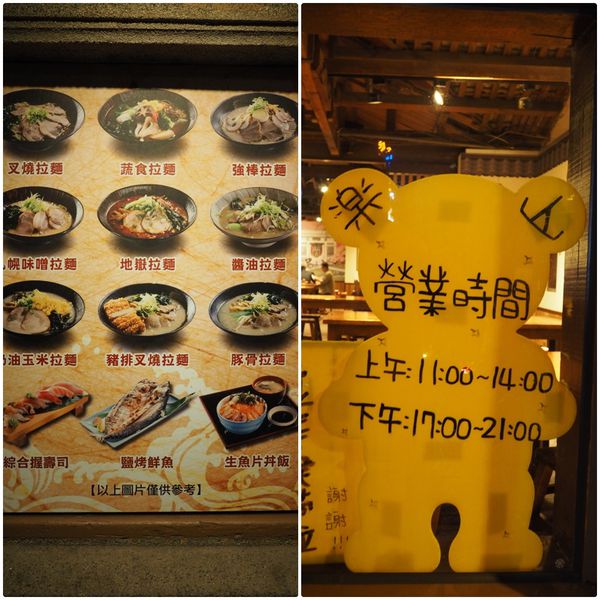 叉燒拉麵
蔬食拉麵
強棒拉麵
幌味噌拉麵
地獄拉麵
醬油拉麵
油玉米拉麵
豬排叉燒拉麵
豚骨拉麵
綜合握壽司
鹽烤鮮魚
生魚片丼飯
【以上圖片僅供參考】
樂
営業時間
上午:11:00~14:00
下午:17:00~21:00
謝
謝
!!!